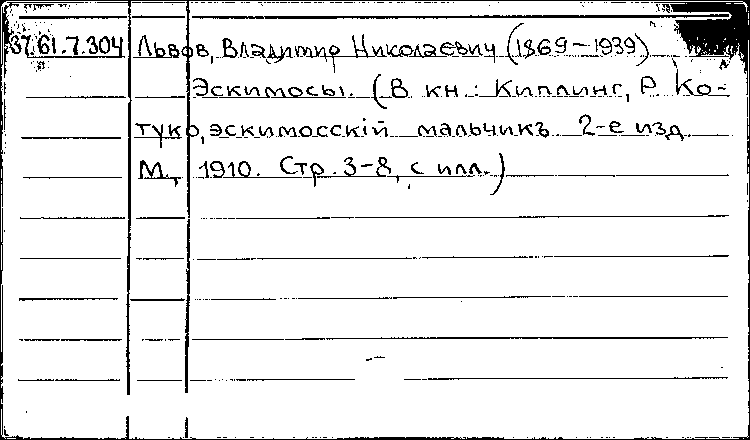 37.61.7.304 Львов, Владимир Николаевич (1869-1939)
Эскимосы. (В кн.: Киплинг, Р. Ко-
туко, эскимосскій мальчикъ 2-е изд
М., 1910. Стр. 3-8, с илл.)